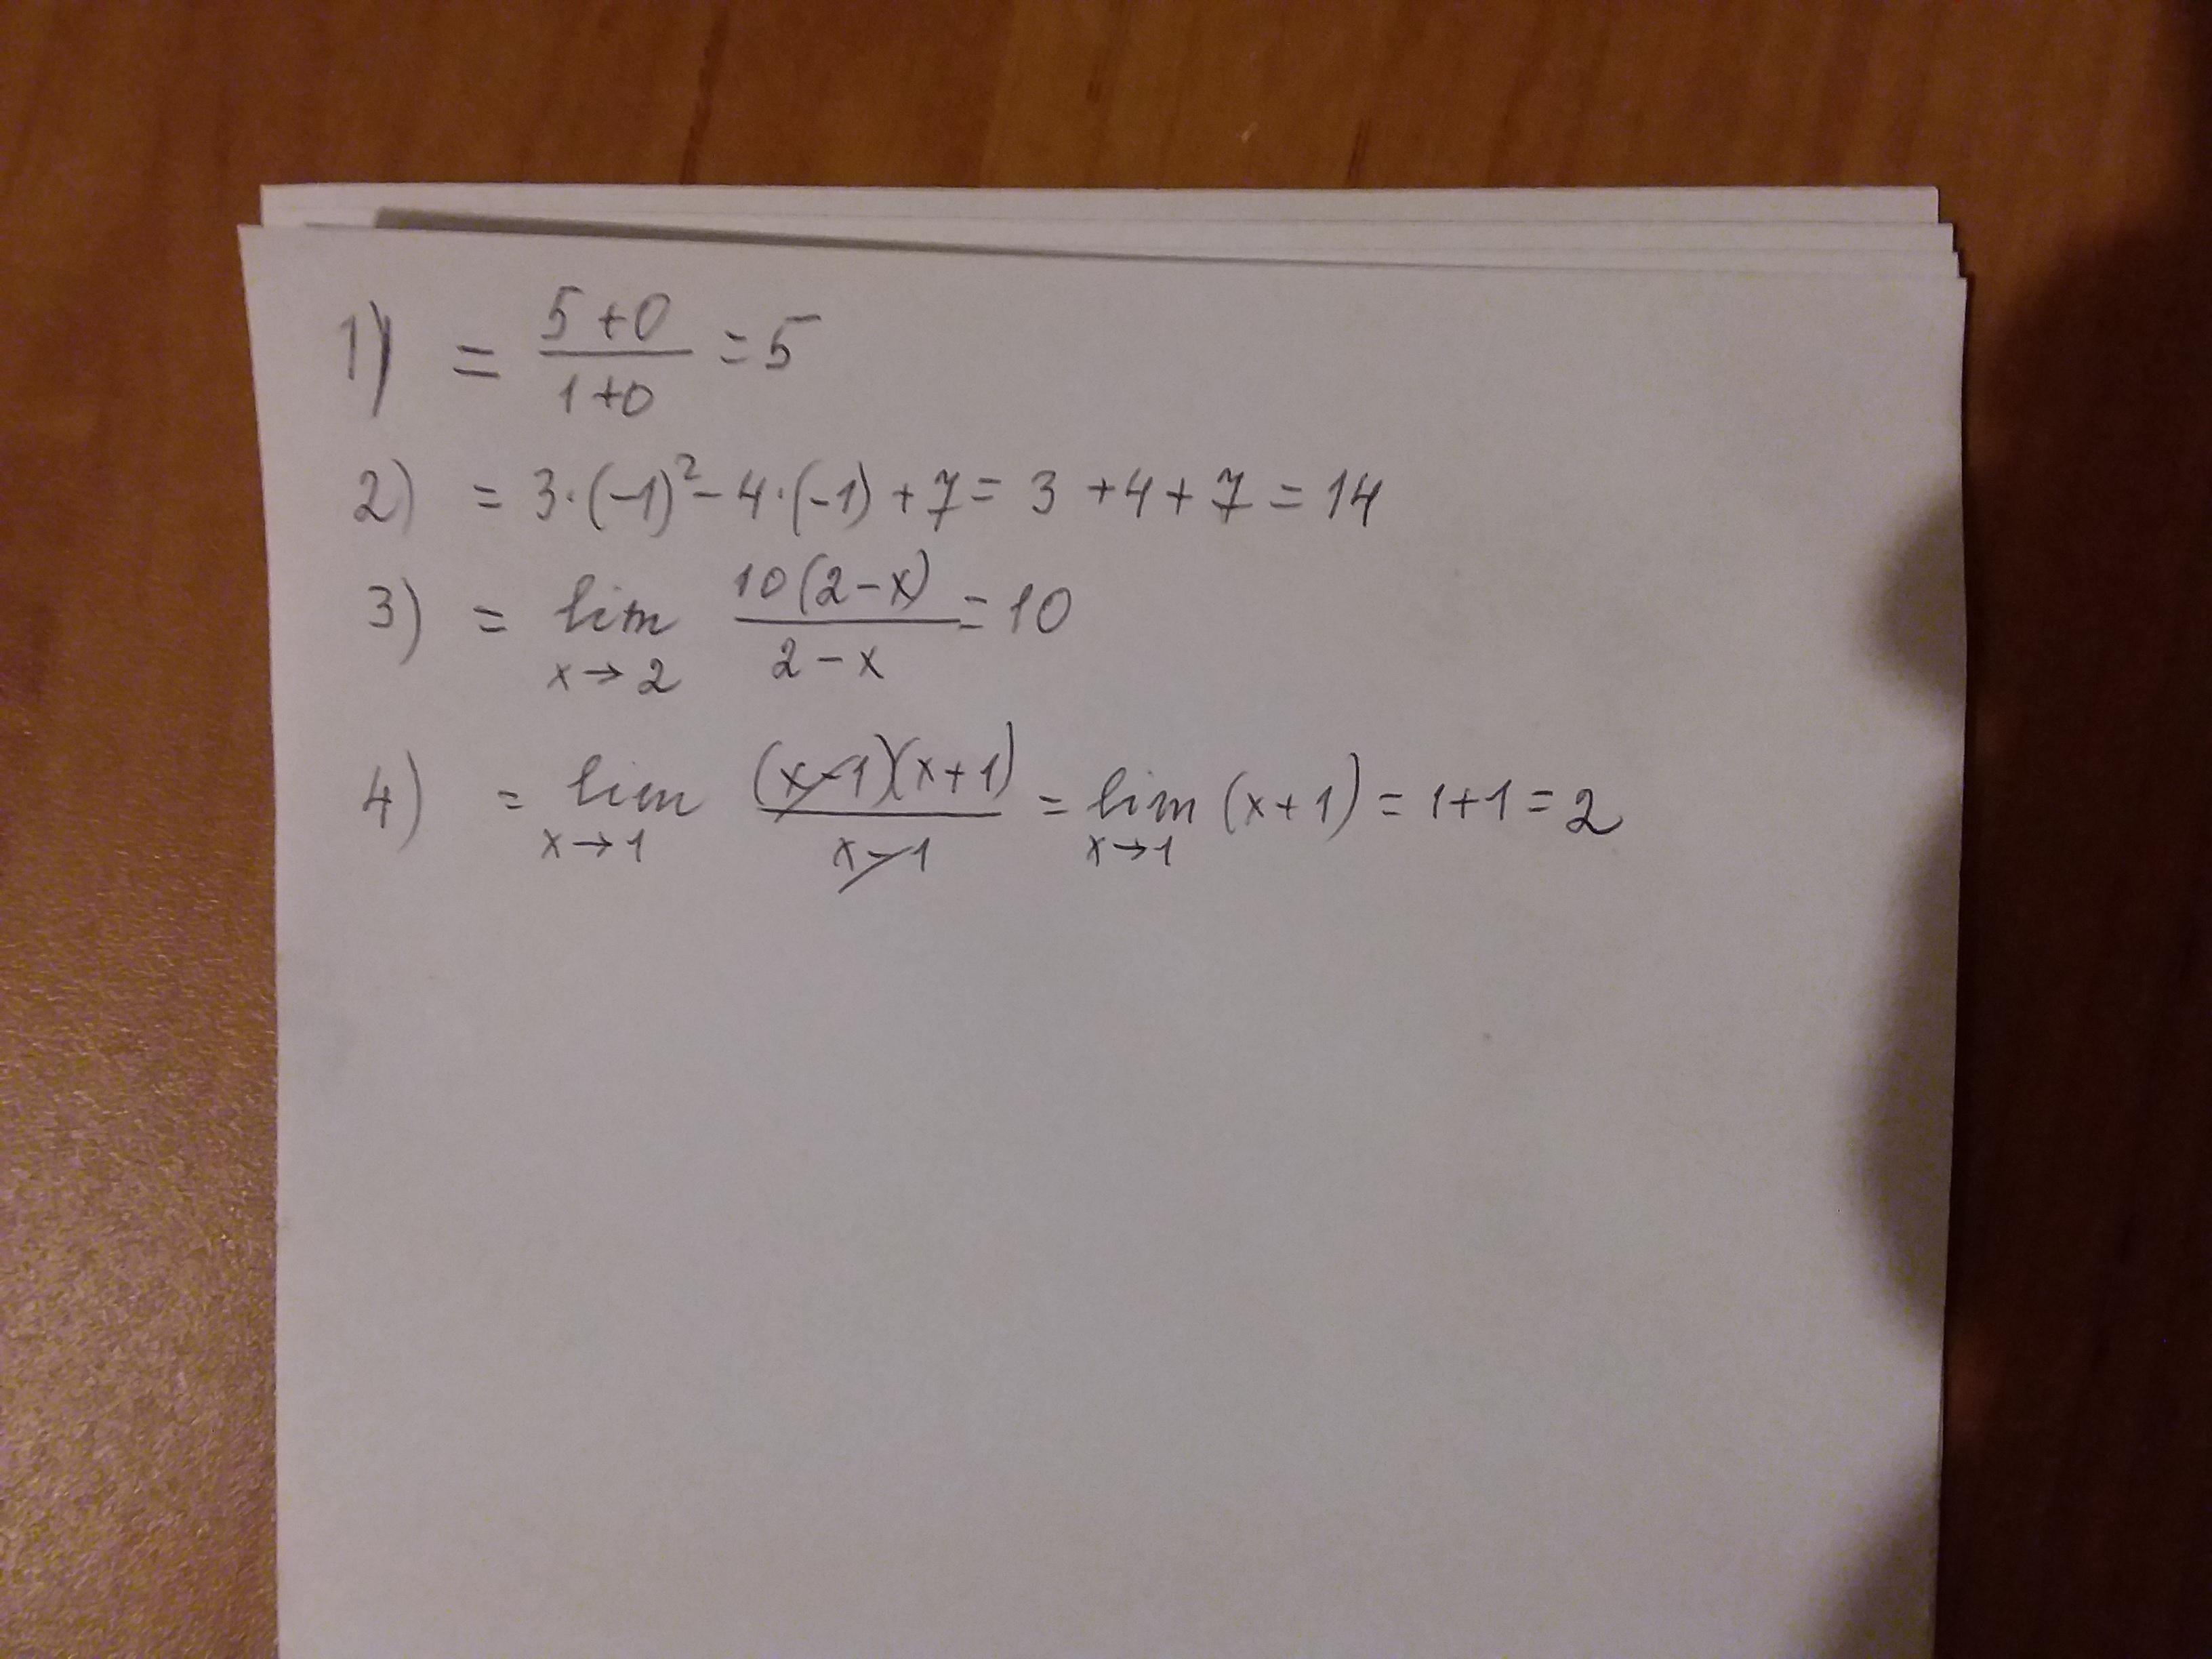 1) = (5+0)/(1+0) = 5
2) = 3·(-1)² - 4·(-1) + 7 = 3 + 4 + 7 = 14
3) = lim x→2 10(2-x)/(2-x) = 10
4) = lim x→1 (x-1)(x+1)/(x-1) = lim x→1 (x+1) = 1+1 = 2